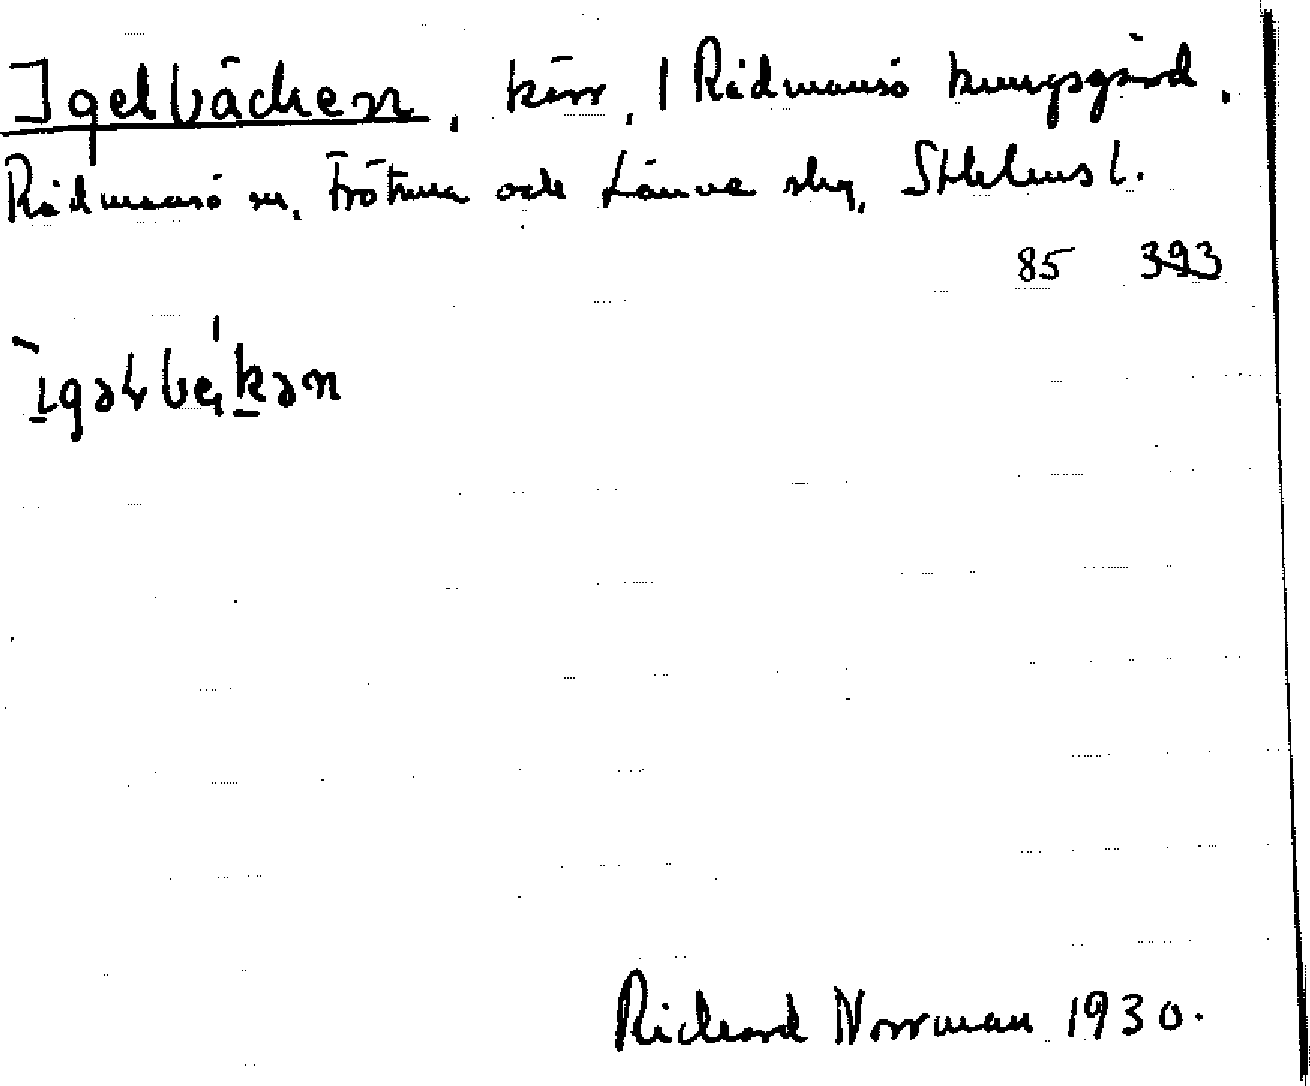 Igelbäcken, kärr, / Rådmansö kungsgård,
Rådmansö sn, Frötuna och Länna skg, Sthlms l.
85 393
Richard Norrman 1930.